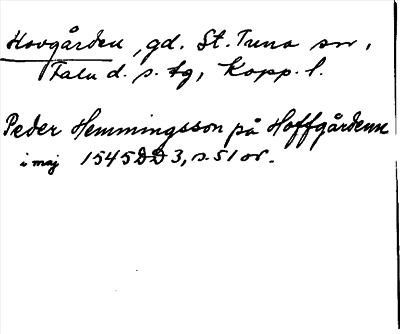 Hovgården, gd. St. Tuna sn,
Falu d. s. tg, Kopp. l.
Peder Hemmingsson på Hoffgårdenn
i maj 1545 DD 3, s. 51 or.